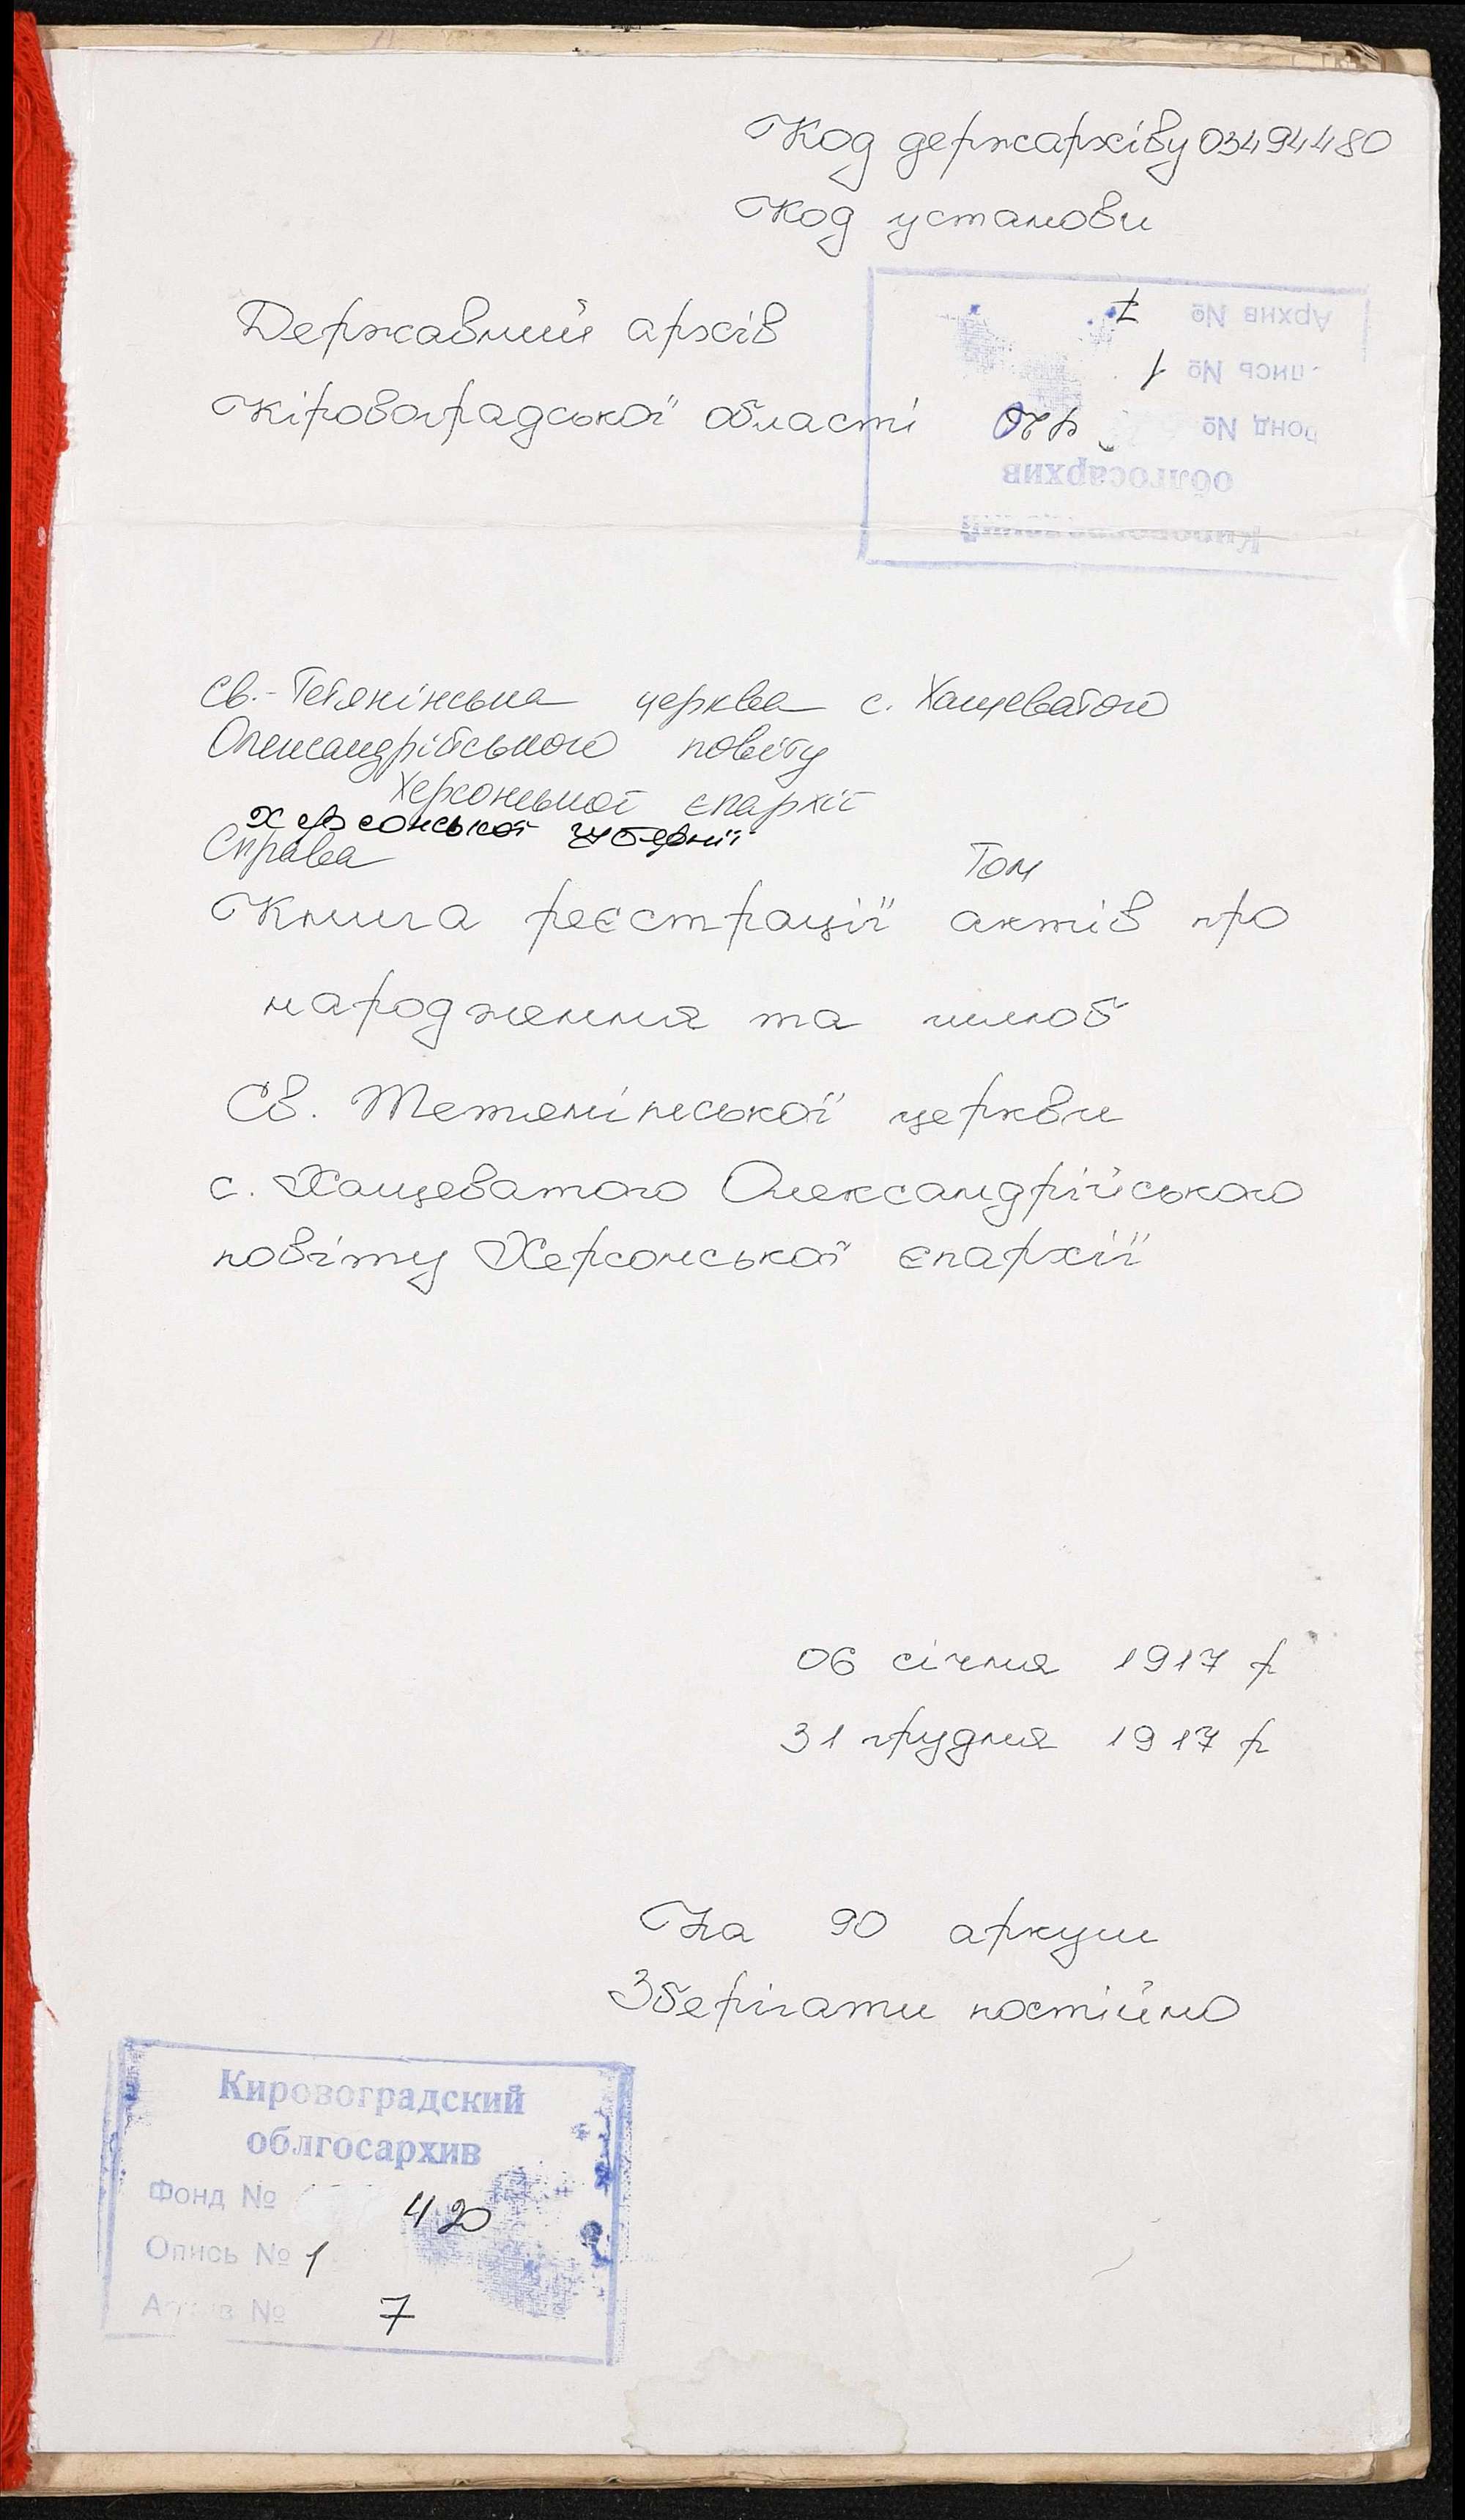 Код держархіву 03494480
Код установи
Державний архів
Кіровоградської області
Архив № 7
пись № 1
онд № 420
облгосархив
Кировоградский
Св.-Тетянінська церква с. Хащеватого
Олександрійського повіту
Херсонської єпархії
Херсонської губернії
Справа Том
Книга реєстрації актів про
народження та шлюб
Св. Тетянінської церкви
с. Хащеватого Олександрійського
повіту Херсонської єпархії
06 січня 1917 р
31 грудня 1917 р
На 90 аркуш
Зберігати постійно
Кировоградский
облгосархив
Фонд № 420
Опись № 1
Архив № 7